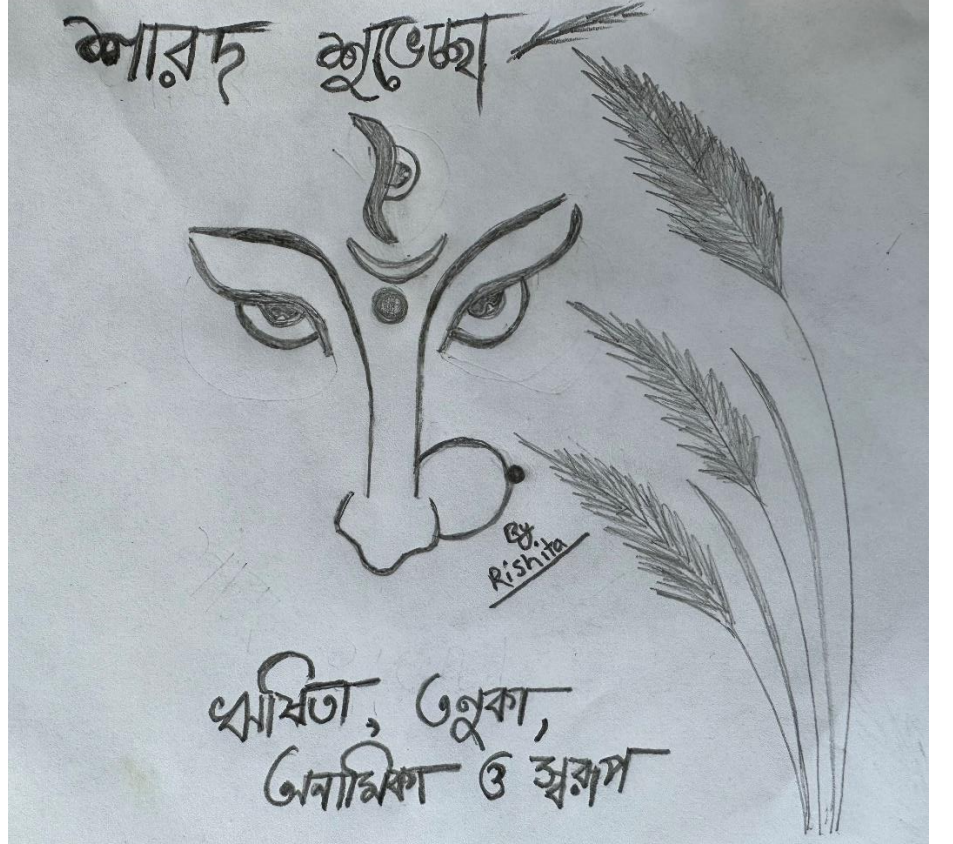 শারদ শুভেচ্ছা
By
Rishita
ঋষিতা, তনুকা,
অনামিকা ও স্বরূপ